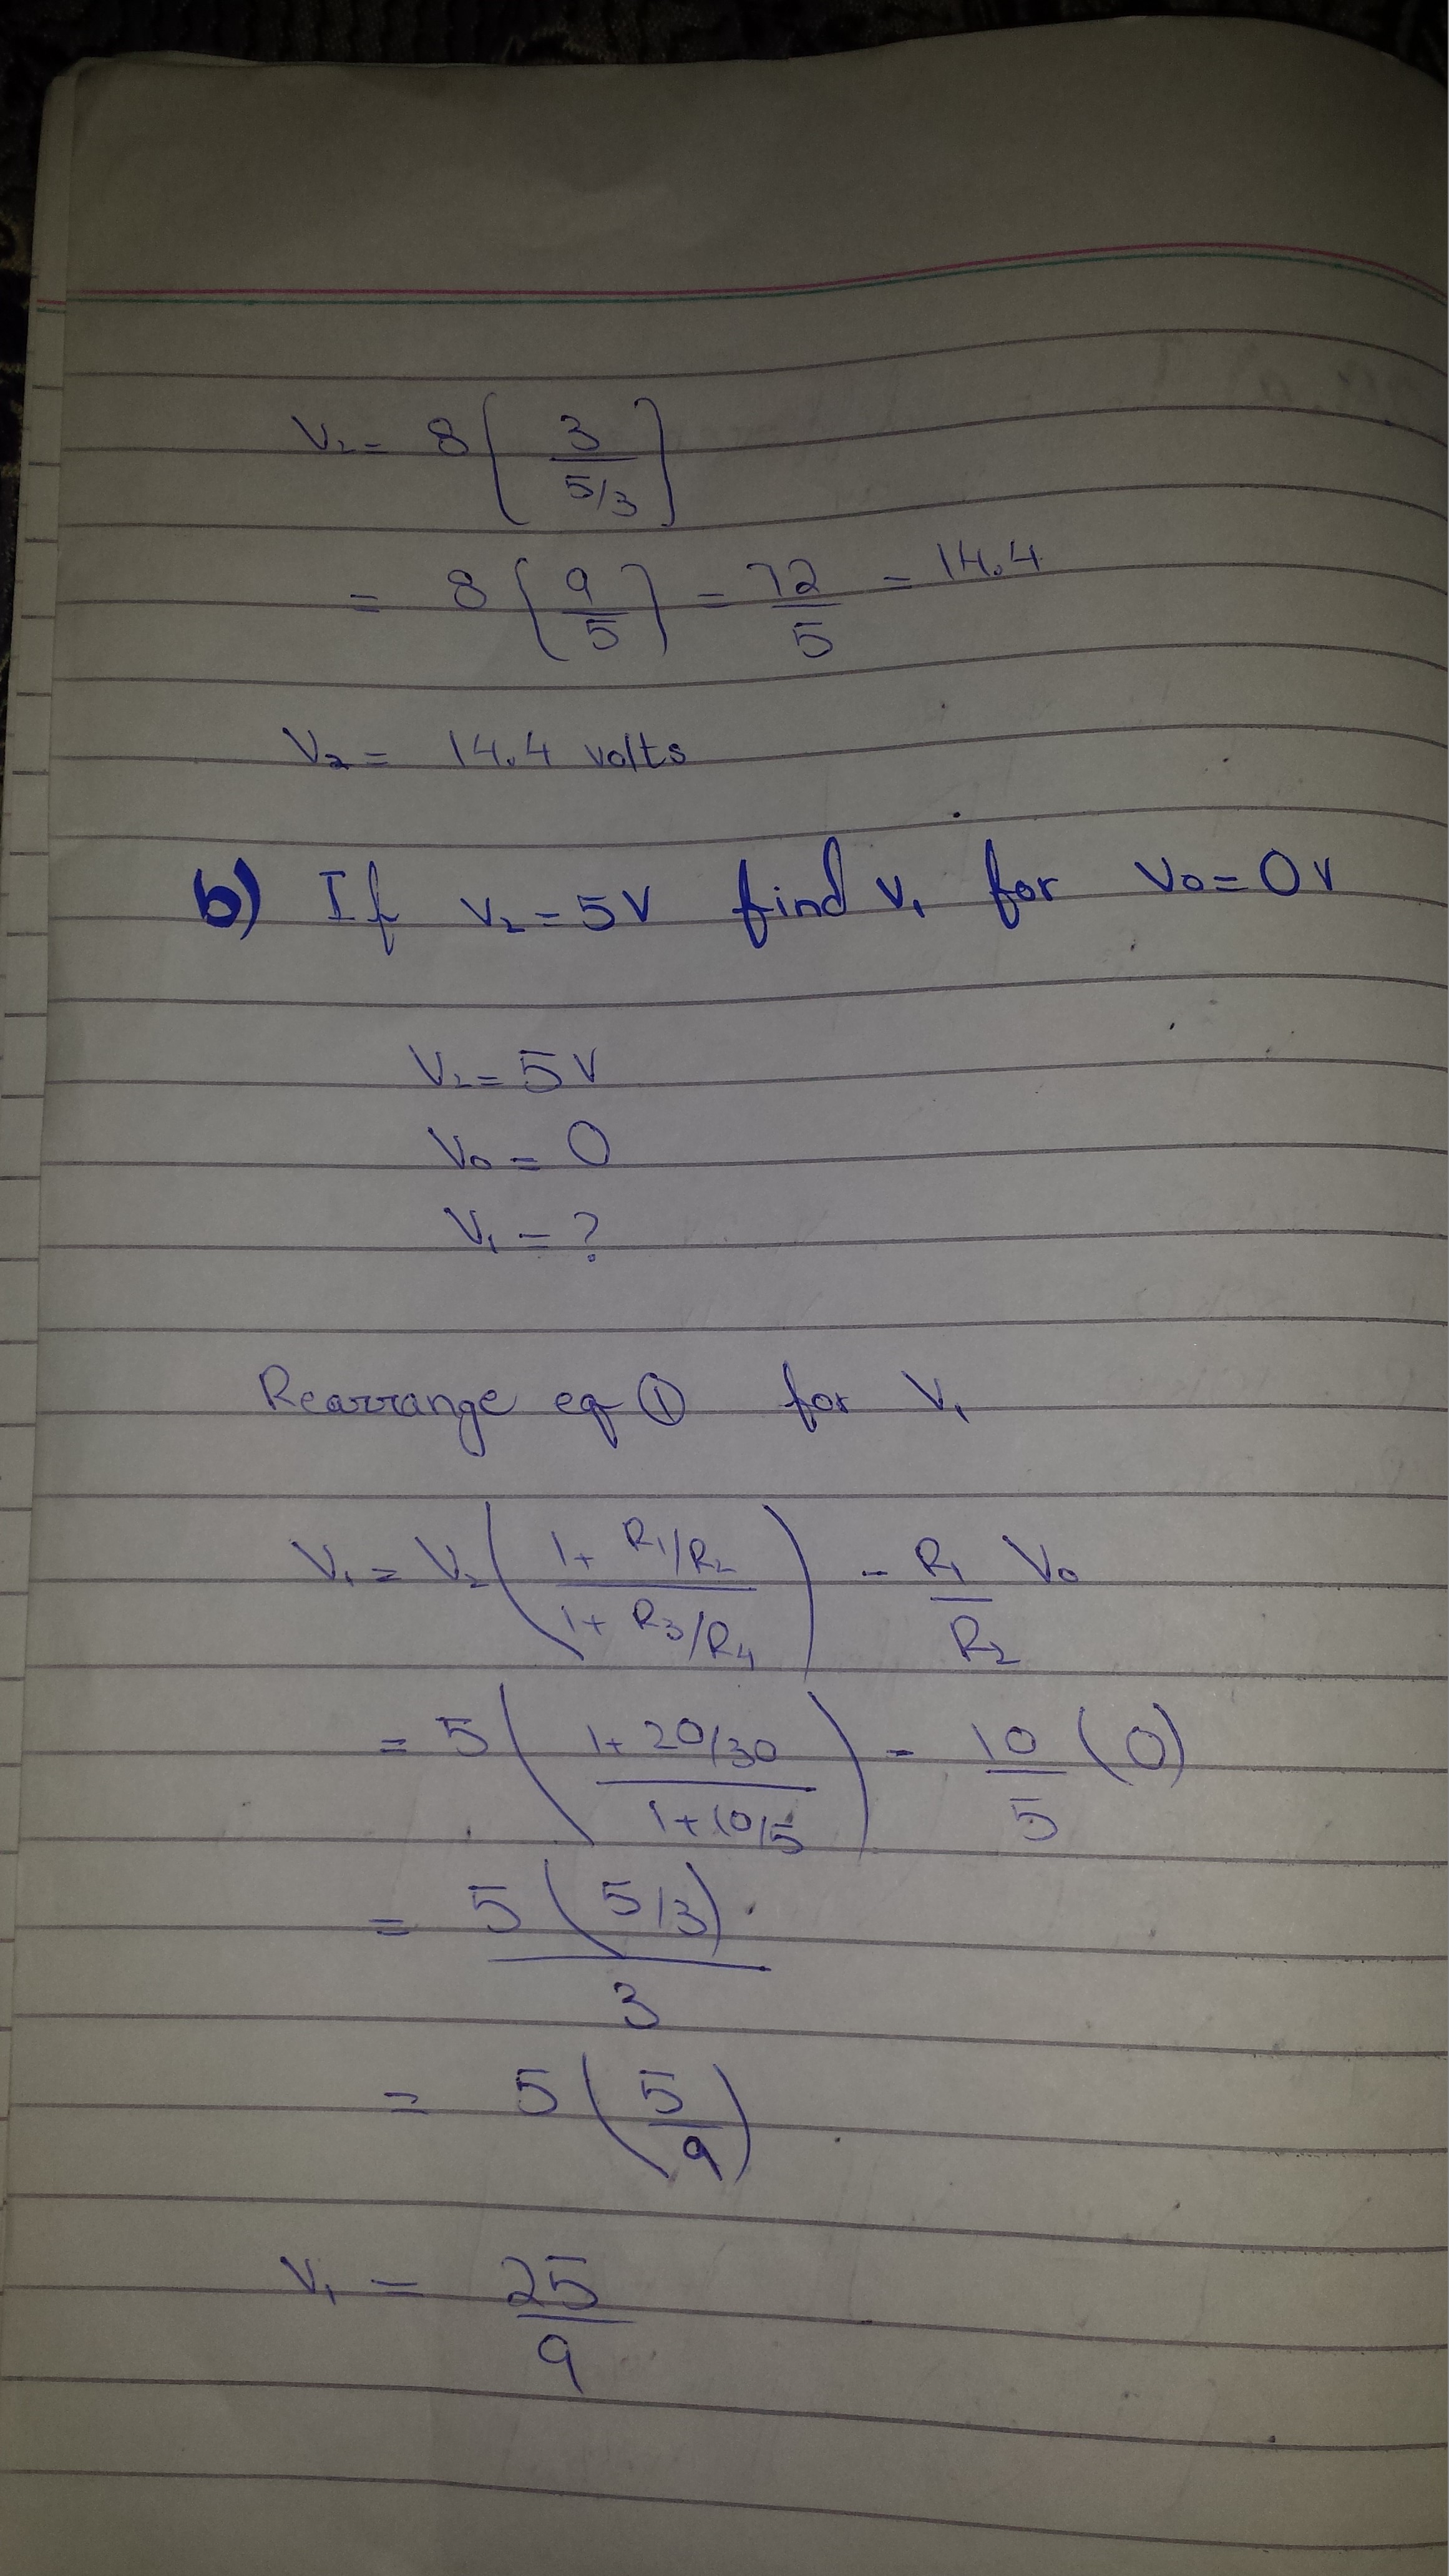 V₂ = 8 [ 3 / 5/3 ]
= 8 [ 9/5 ] = 72/5 = 14.4
V₂ = 14.4 volts
b) If V₂ = 5V find V₁ for V₀ = 0V
V₂ = 5V
V₀ = 0
V₁ = ?
Rearrange eq ① for V₁
V₁ = V₂ ( 1 + R₁/R₂ / 1 + R₃/R₄ ) - R₁/R₂ V₀
= 5 ( 1 + 20/30 / 1 + 10/5 ) - 10/5 (0)
= 5 ( 5/3 ) / 3
= 5 ( 5/9 )
V₁ = 25/9